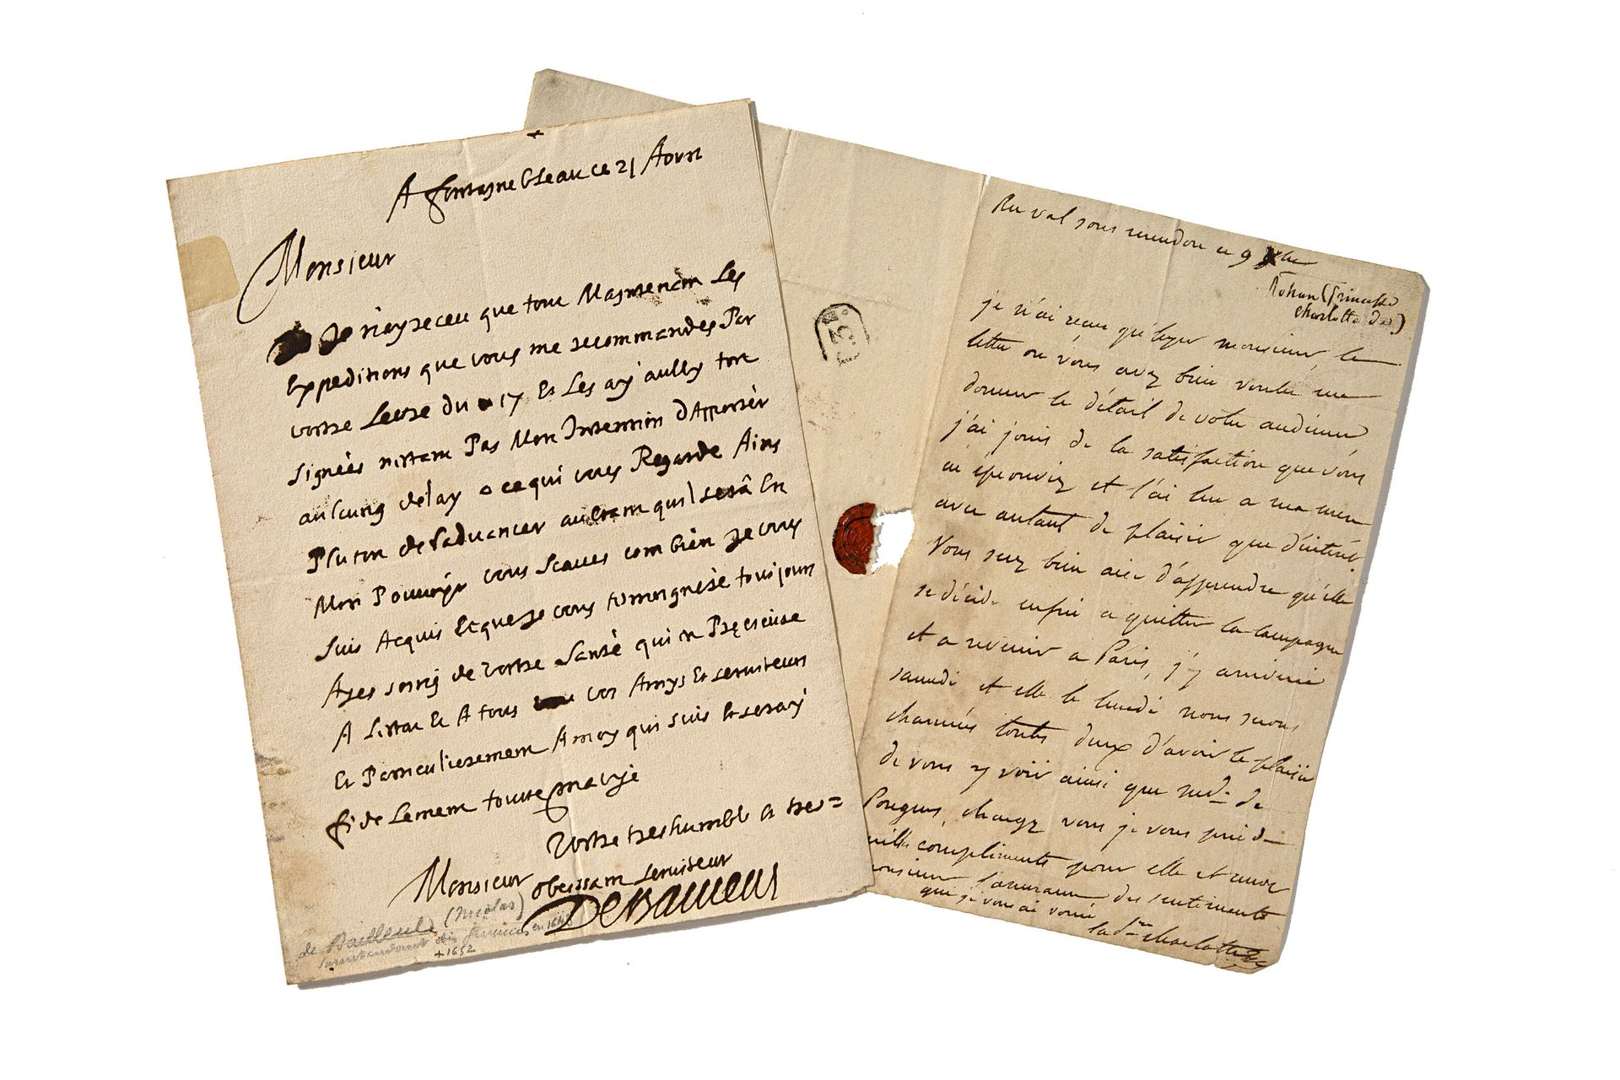 A fontayne bleau ce 21 Avril
Monsieur
Je nay receu que tout Maintenan Les
Expeditions que vous me recommandes Par
vostre Lettre du 17 Et Les ay aussy tost
signées nestant Pas Mon Intention d'Apporter
aulcung delay a ce qui vous Regarde Ains
Plutost de l'advancer aultant quil sera En
Mon Pouvoyr vous scaves combien Je vous
suis Acquis Et que Je vous tesmoigneré tousjours
Ayes soing de vostre Santé qui est Precieuse
A Lestat Et A tous vos Amys Et serviteurs
Et Particulierement A moy qui suis Et seray
toutte ma vye
Vostre tres humble et tres=
Monsieur obeissant serviteur
De Bailleul
de Bailleul (Nicolas)
surintendant des finances en 1643
+ 1652
Au val sous meudon ce 9
Rohan (Princesse
Charlotte de)
je n'ai reçu qu'hyer monsieur, la
lettre ou vous avez bien voulu me
donner le détail de votre audience
j'ai joui de la satisfaction que vous
en éprouviez et l'ai lue a ma mere
avec autant de plaisir que d'intérêt
Vous serez bien aise d'apprendre qu'elle
se décide enfin a quitter la campagne
et a revenir a Paris, j'y arriverai
samedi et elle le lundi nous serons
charmées toutes deux d'avoir le plaisir
de vous y voir ainsi que md. de
Pougens, chargez vous je vous prie de
mille compliments pour elle et recevez
monsieur l'assurance des sentiments
que je vous ai voués
la Psse charlotte